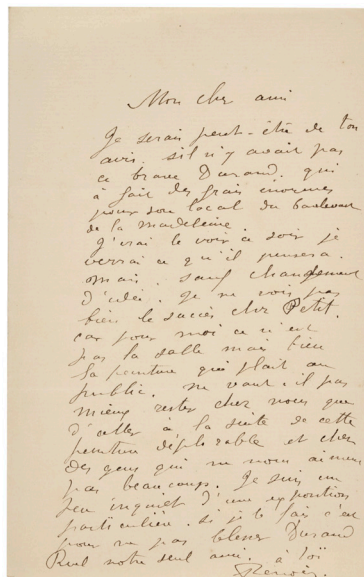 Mon cher ami
Je serais peut-être de ton
avis. s'il n'y avait pas
ce brave Durand. qui
à fait des frais enormes
pour son local du boulevard
de la madeleine.
J'irai le voir ce soir je
verrai ce qu'il pensera.
mais. sauf changement
d'idée. Je ne vois pas
bien le succès chez Petit.
car pour moi ce n'est
pas la salle mais bien
la peinture qui plait au
public. ne vaut-il pas
mieux rester chez nous que
d'aller à la suite de cette
peinture déplorable et chez
des gens qui ne nous aiment
pas beaucoup. Je suis un
peu inquiet d'une exposition
particulière. si je le fais c'est
pour ne pas blesser Durand
Ruel notre seul ami. à toi
Renoir.